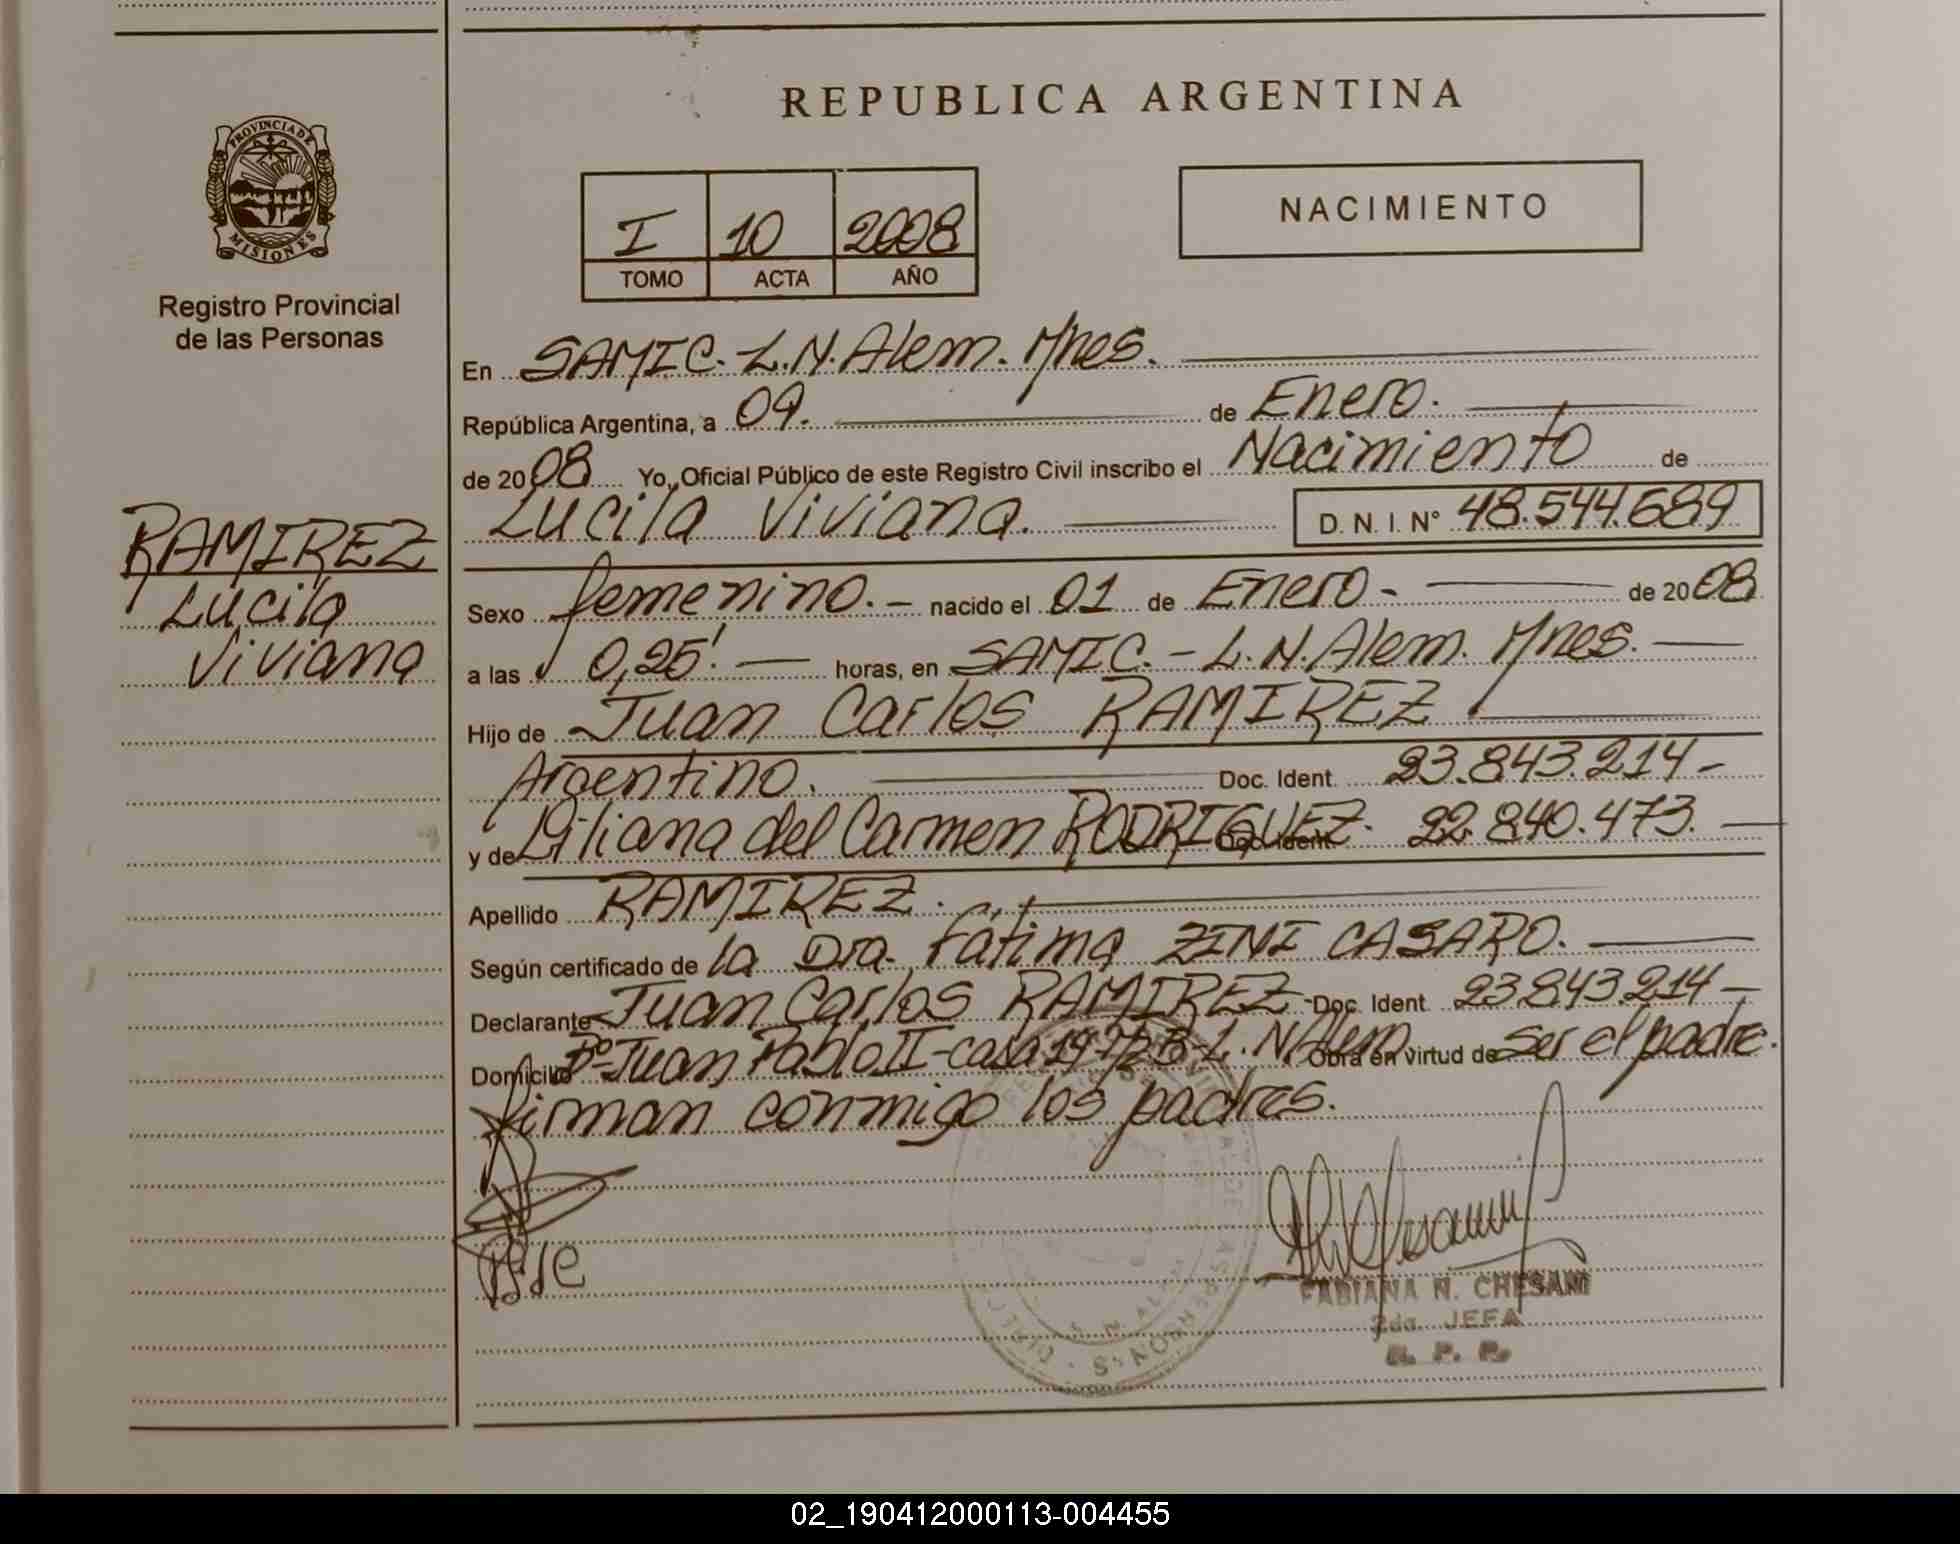 REPUBLICA ARGENTINA
PROVINCIA DE
MISIONES
Registro Provincial
de las Personas
I 10 2008
TOMO ACTA AÑO
NACIMIENTO
RAMIREZ
Lucila
Viviana
En SAMIC. L.N. Alem. Mnes.
República Argentina, a 09. de Enero.
de 2008 Yo, Oficial Público de este Registro Civil inscribo el Nacimiento de
Lucila Viviana. D. N. I. N° 48.544.689
Sexo femenino. - nacido el 01 de Enero - de 2008
a las 0,25'. horas, en SAMIC. - L.N. Alem. Mnes.
Hijo de Juan Carlos RAMIREZ
Argentino. Doc. Ident. 23.843.214-
y de Liliana del Carmen RODRIGUEZ. Doc. Ident. 22.840.473.
Apellido RAMIREZ.
Según certificado de la Dra. Fátima ZINI CASARO.
Declarante Juan Carlos RAMIREZ - Doc. Ident. 23.843.214-
Domicilio Bº Juan Pablo II - casa 19 - L.N. Alem Obra en virtud de ser el padre.
firman conmigo los padres.
FABIANA N. CHESANI
2da. JEFA
R. P. P.
02_190412000113-004455